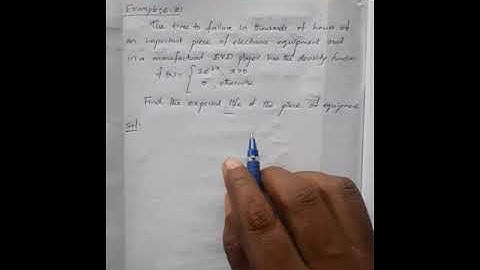 The time to failure in thousands of hours of
an important piece of electronic equipment used
in a manufactured DVD player has the density function
f(x) = { 2e^{-2x}, x>0
0, otherwise
Find the expected life of the piece of equipment
Sol: